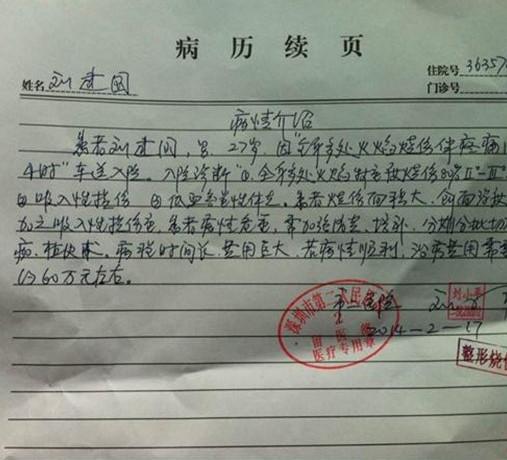 病历续页
姓名 刘建国 住院号 36357
门诊号
病情介绍
患者刘建国,男,27岁,因"全身多处火焰烧伤伴疼痛
4小时"车送入院。入院诊断"①全身多处火焰特重度烧伤 II°-III°
②吸入性损伤 ③低血容量性休克。患者烧伤面积大,创面深
加之吸入性损伤重,患者病情危重,需加强清创,换药,分期分批切
痂、植皮术。病程时间长,费用巨大,若病情顺利,治疗费用需要
约60万元左右。
深圳市第二人民医院
医疗专用章
市二医院
2014-2-17
刘小
整形烧伤